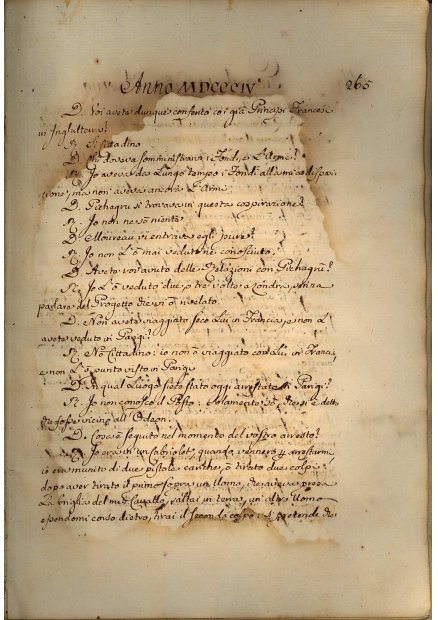 Anno MDCCCIV 265
D. Voi avete dunque conferito coi già Principi Francesi
in Inghilterra?
R. Si Cittadino
D. Chi doveva somministrarvi i Fondi, e L'Arme?
R. Io aveva da Lungo tempo i Fondi alla mia dispo=
sizione, ma non aveva ancora L'Arme.
D. Pichegru si trovava in questa cospirazione?
R. Io non ne sò niente
D. Moureau vi entrava egli pure?
R. Io non L'ò mai veduto nè conosciuto.
D. Avete voi avuto delle Relazioni con Pichegrù?
R. Io L'ò veduto due, o tre volte a Londra, senza
parlare del Progetto che vi ò rivelato.
D. Non avete viaggiato seco Lui in Francia, e non L'
avete veduto in Parigi?
R. No Cittadino: io non ò viaggiato con Lui in Francia
e non L'ò punto visto in Parigi
D. In qual Luogo siete stato oggi arrestato in Parigi?
R. Io non conosco il Posto: solamente
fosse vicino all'Odeon.
D. Cosa è seguito nel momento del vostro arresto?
R. Io era in un Cabriolet, quando vennero ad arrestarmi,
io era munito di due pistole cariche, ò tirato due colpi:
dopo aver tirato il primo sopra un Uomo, che aveva presa
La briglia del mio Cavallo, saltai in terra, un'altro Uomo
essendomi corso dietro, tirai il secondo colpo: si pretende che